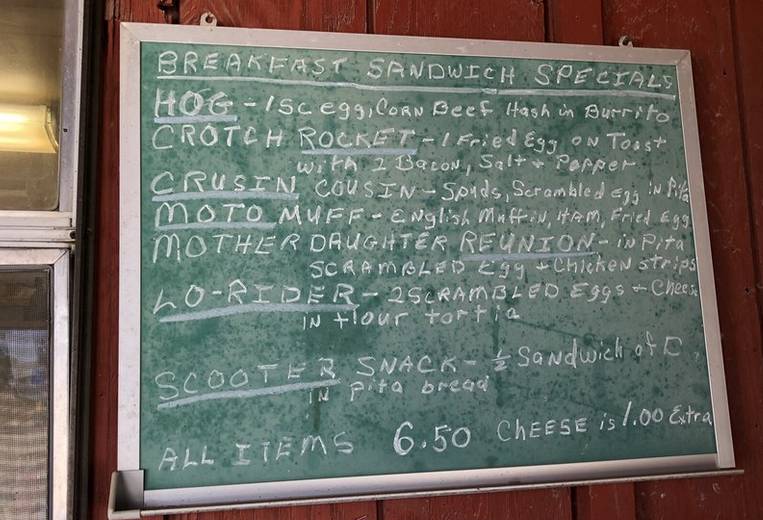 BREAKFAST SANDWICH SPECIALS
HOG - 1 SC egg, CORN Beef Hash in Burrito
CROTCH ROCKET - 1 Fried Egg ON Toast
with 2 Bacon, Salt + Pepper
CRUSIN COUSIN - Spuds, Scrambled Egg in Pita
MOTO MUFF - English Muffin, HAM, Fried Egg
MOTHER DAUGHTER REUNION - in Pita
SCRAMBLED Egg + Chicken strips
LO-RIDER - 2 SCRAMBLED Eggs + Cheese
IN flour tortia
SCOOTER SNACK - ½ Sandwich of
IN pita bread
ALL ITEMS 6.50 CHEESE is 1.00 Extra